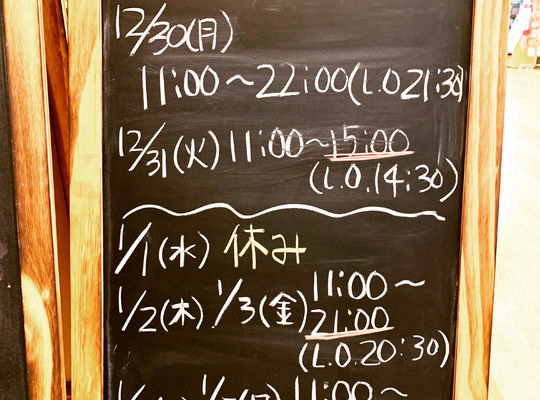 12/30(月)
11:00～22:00(L.O 21:30)
12/31(火) 11:00～15:00
(L.O.14:30)
1/1(水) 休み
1/2(木) 1/3(金) 11:00～
21:00
(L.O.20:30)
11:00～